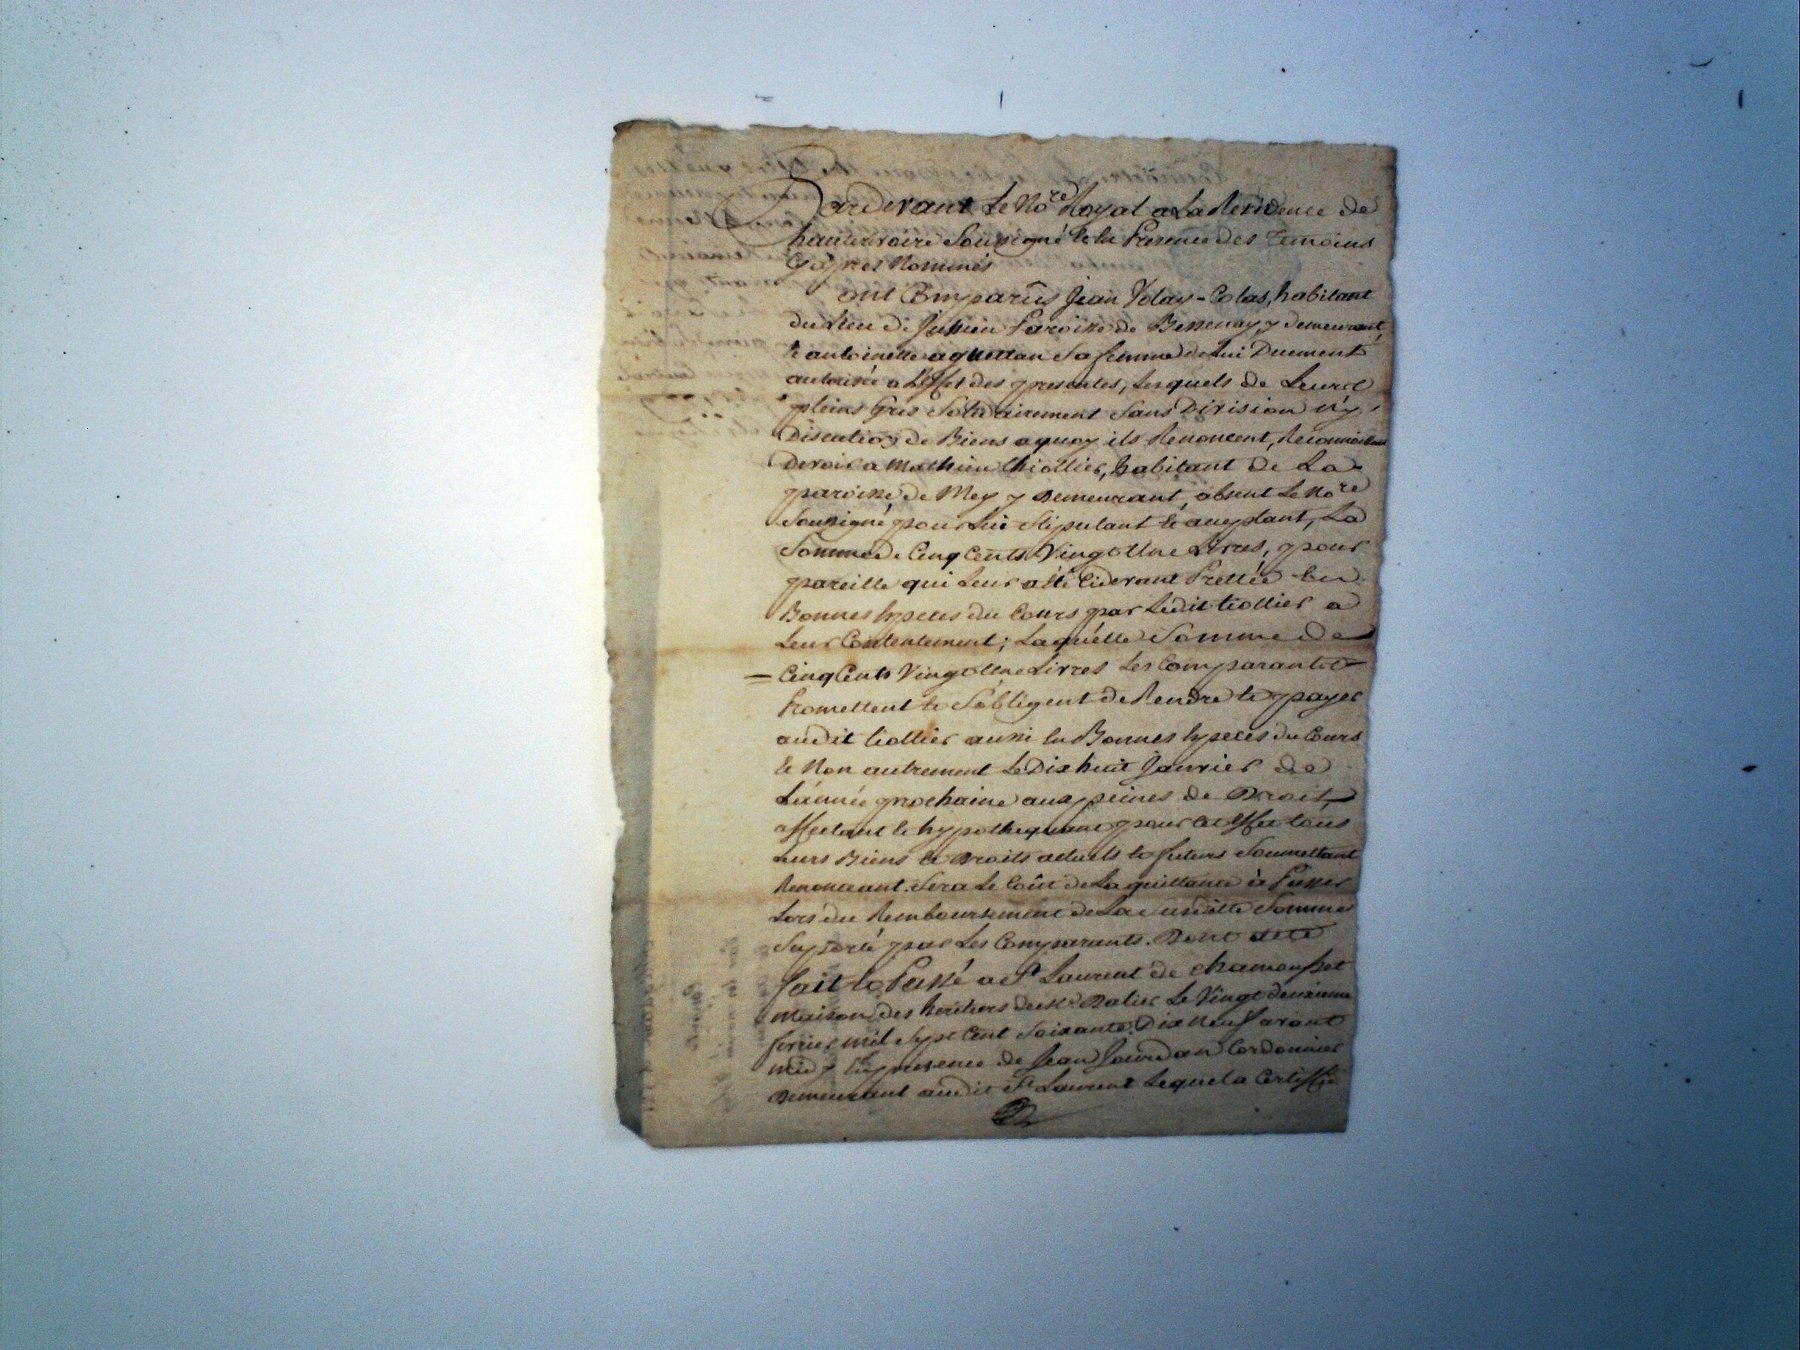 Pardevant Le No.re Royal a La Residence de
hauterivoire Soussigné & En Presence des Temoins
Cyaprès Nommés
ont Comparûs Jean Volay-Colas, habitant
du Lieu de Jussieu Paroisse de Bessenay y demeurant,
& antoinette sa femme de Lui Duement
autorisée a L'Effet des presentes, Lesquels de Leurs
pleins Grés Solidairement Sans Division n'y
Discution de Biens aquoy ils Renoncent, Reconnoissent
devoir a Mathieu thiollier, habitant de La
paroisse de Mey y Demeurant, absent Le No.re
Soussigné pour Lui Stipulant & aceptant, La
Somme de Cinq Cents Vingt Une Livres, pour
pareille qui Leur a été Cidevant Prettée En
Bonnes Especes du Cours par Ledit tiollier a
Leur Contentement; Laquelle Somme de
= Cinq Cents Vingt Une Livres Les Comparants
Promettent & S'obligent de Rendre & payer
audit tiollier aussi En Bonnes Especes du Cours
& Non autrement Le Dix huit Janvier de
L'année prochaine aux peines de Droit,
affectant & hypothequant pour Cet Effet tous
Leurs Biens & Droits actuels & futurs Soumettant
Renonceant. Sera Le Coût de La quittance à Passer
Lors du Remboursement de La Susditte Somme
Suporté par Les Comparants. Dont acte
fait & Passé a S.t Laurent de chamousset
maison des heritiers de Le Vingt deuxieme
fevrier mil Sept Cent Soixante Dix Neuf avant
midy En presence de Jean Jourdan Cordonnier
Demeurant audit S.t Laurent Lequel a Certiffié